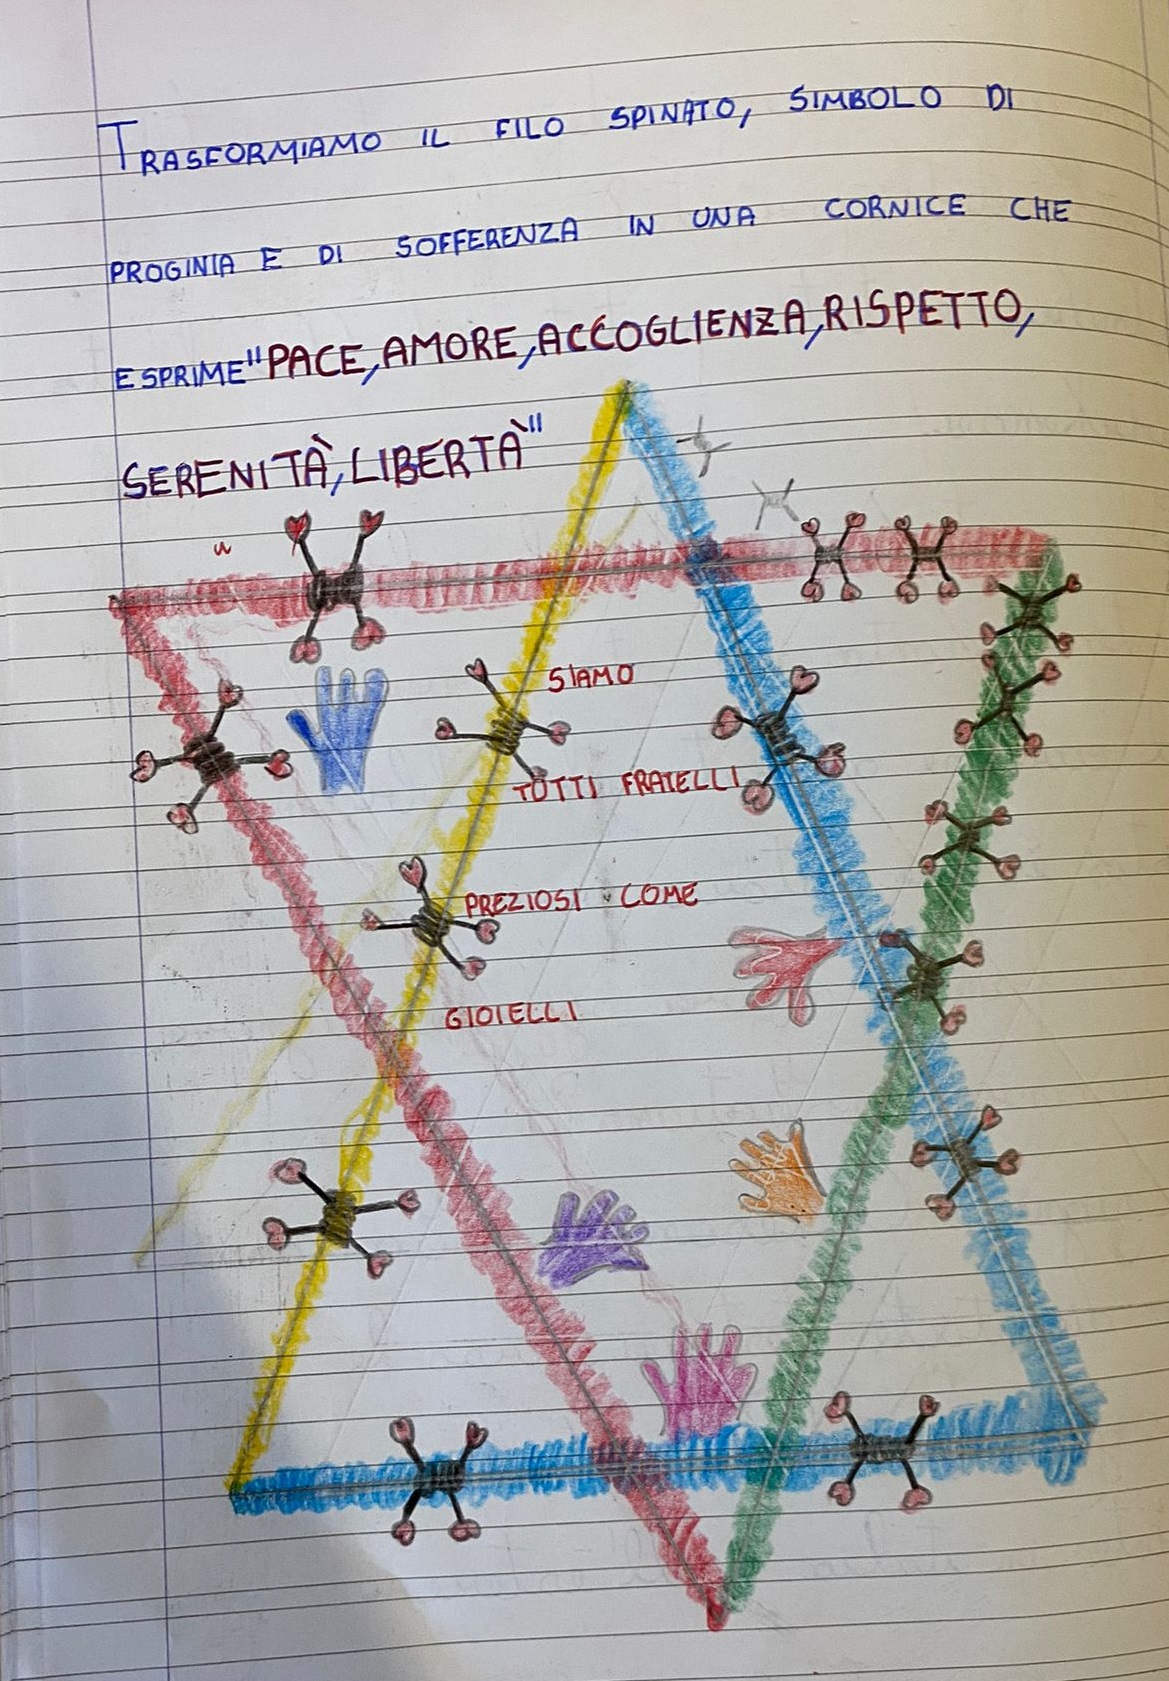 TRASFORMIAMO IL FILO SPINATO, SIMBOLO DI
PROGINIA E DI SOFFERENZA IN UNA CORNICE CHE
ESPRIME "PACE, AMORE, ACCOGLIENZA, RISPETTO,
SERENITÀ, LIBERTÀ"
SIAMO
TUTTI FRATELLI
PREZIOSI COME
GIOIELLI